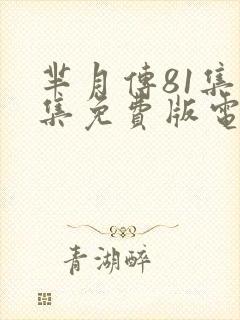 芈月傳81集
集免費版電
青湖醉